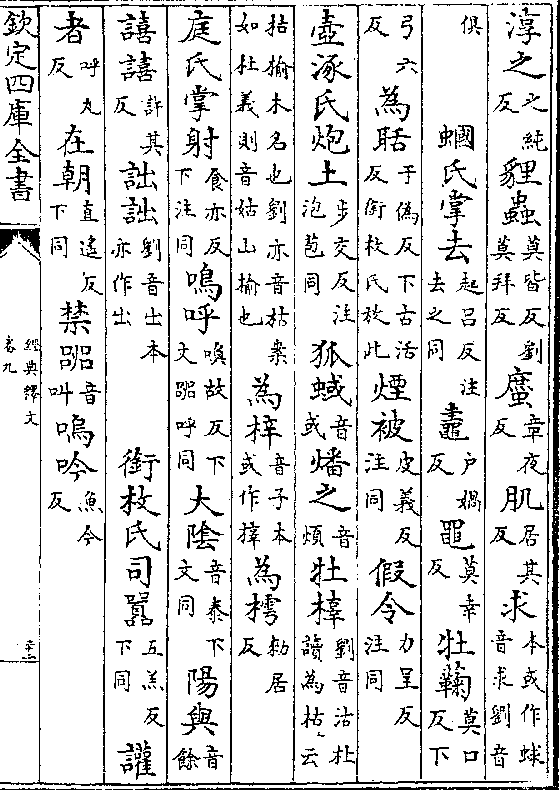 淳之之純反貍蟲莫皆反劉莫拜反䗪章夜反肌居其反求本或作蛷音求劉音
俱蟈氏掌去起呂反注去之同鼃戶媧反黽莫幸反牡蘜莫口反下
弓六反為聒于偽反下古活反銜枚氏放此煙被皮義反注同假令力呈反注同
壺涿氏炮土步交反注泡苞同狐蜮音或燔之音煩牡橭劉音沽杜讀為枯〻云
枯榆木名也劉亦音枯案如杜義則音姑山榆也為梓音子本或作榟為樗勑居反
庭氏掌射食亦反下注同嗚呼喚故反下文嘂呼同大陰音泰下文同陽與音餘
譆譆許其反詘詘劉音出本亦作出銜枚氏司囂五羔反下同讙
者呼丸反在朝直遙反下同禁嘂音叫嗚吟魚今反
欽定四庫全書
經典釋文
卷九